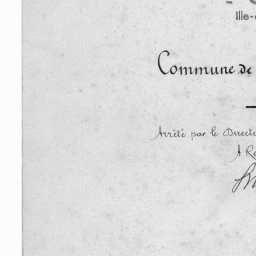 Ille-
Commune de
Arrêté par le Direct
A R